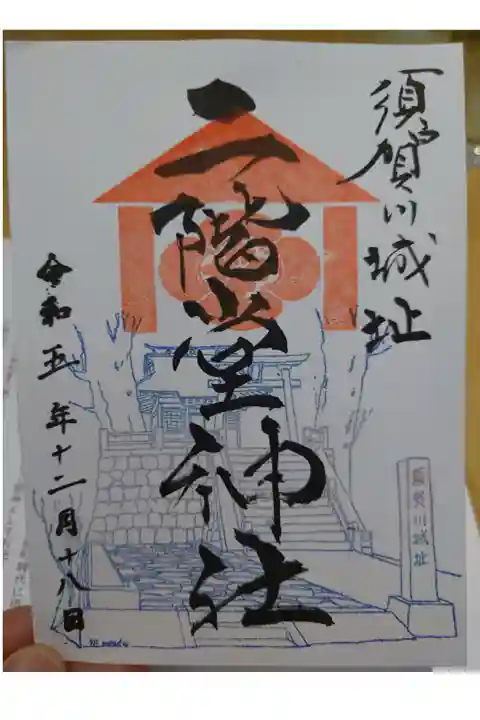 須賀川城址
二階堂神社
令和五年十二月十八日
須賀川城址